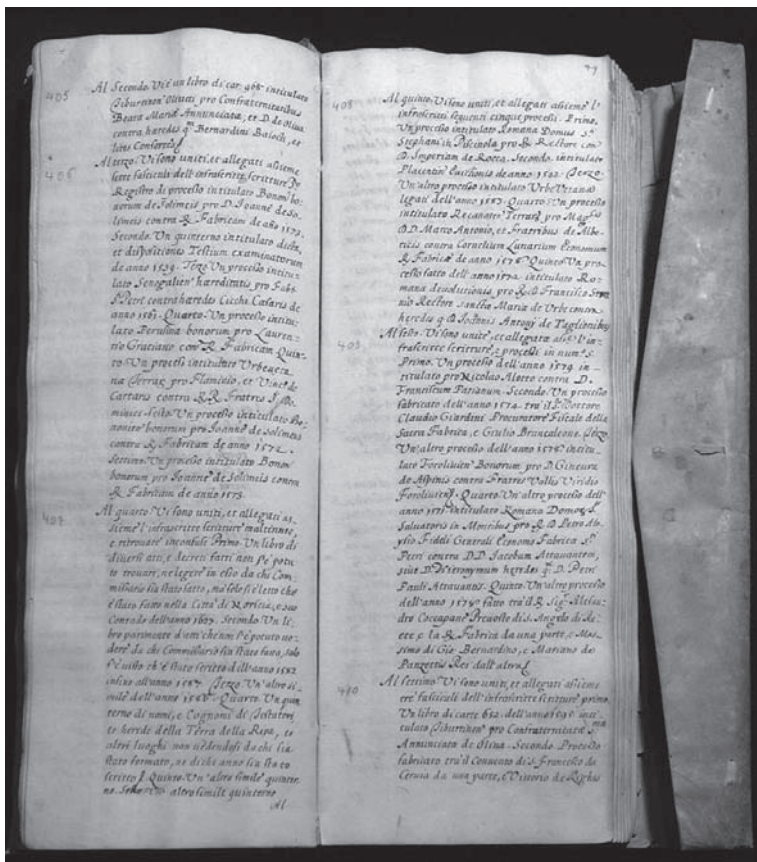 405
Al Secondo. Vi è un libro di car. 968 intitulato
Tiburtinen Oliveti, pro Confraternitatibus
Beatæ Mariæ Annunciatæ, et D. de Oliva
contra heredes qm Bernardini Baloch, et
litis Consortes
406
Al terzo. Vi sono uniti, et allegati assieme
sette fasciculi dell'infrascritte scritture Pº
Registro di processo intitulato Bonon bo:
norum de Solimeis pro D. Joanne de So:
limeis contra R. Fabricam de año 1573.
Secondo. Un quinterno intitulato dicta,
et dispositiones Testium examinatorum
de anno 1539. Terzo Un processo intitu:
lato Senogalien hæreditatis pro Fabª
S. Petri contra hæredes Cicchi Cæsaris de
anno 1561. Quarto. Un processo intitu:
lato Perusina bonorum pro Lauren:
tio Gratiano contª R. Fabricam Quin:
to. Un processº intitulato Urbevetª
na Terræ pro Flaminio, et Vincº de
Cartaris contra R.R. Fratres S. Do
minici. Sesto. Un processo intitulato Bo:
nonien bonorum pro Joanne de Solimeis
contra R. Fabricam de anno 1572.
Settimo. Un processo intitulato Bonon
bonorum pro Joanne de Solimeis contra
R. Fabricam de anno 1573
407
Al quarto. Vi sono uniti, et allegati as:
sieme l'infrascritte scritture malte nute,
e ritirate inconfuse Primo. Un libro di
diversi atti, e decreti fatti non si è potu
to trovare, ne legere in esso da chi Com:
missario sia stato fatto, ma solo si è letto che
è stato fatto nella Città di Norscia, e suo
Contado dell'anno 1607. Secondo. Un li:
bro parimente d'atti che non si è potuto ve:
dere da chi Commissario sia stato fatto, solo
si è visto ch'è stato scritto dell'anno 1582
insino all'anno 1587 Terzo. Un'altro si:
mile dell'anno 1588. Quarto. Un quin
terno di nomi, e Cognomi di Testatori
te herede della Terra della Ripa, et
altri luoghi non vedendosi da chi sia
stato formato, ne di che anno sia stato
scritto. Quinto. Un'altro simile quinter:
no. Sesto Un'altro simile quinterno
Al
99
408
Al quinto. Vi sono uniti, et allegati assieme l'
infrascritti sequenti cinque processi. Primo.
Un processo intitulato Romana Domus Sti
Stephani in Piscinola pro R. Rectore contª
D. Imperiam de Rocca. Secondo. intitulato
Placentin Euchionis de anno 1562. Terzo.
Un'altro processo intitulato Urbevetana
legati dell'anno 1583. Quarto. Un processo
intitulato Recanaten Terrarū pro Magcis
D.D. Marco Antonio, et Fratribus de Albe:
ticis contra Cornelium Lunarium Economum
R. Fabricæ de anno 1578. Quinto. Un pro:
cesso fatto dell'anno 1572. intitulato Ro:
mana devolutionis pro R. D. Francisco
Rectore Sanctæ Mariæ de Urbe contra
heredes q. D. Joannis Antonij de Taglionibus
409
Al Sesto. Vi sono unite, et allegate assª l'in:
frascritte scritture, e processi in numº 5.
Primo. Un processo dell'anno 1579. in:
titulato pro Nicolao Alotto contra D.
Franciscum Patianum. Secondo. Un processo
fabricato dell'anno 1574. tra il Sr Dottore
Claudio Giardini Procuratore Fiscale della
Sacra Fabrica, e Giulio Brancaleone. Terzo
Un'altro processo dell'anno 1576. intitu:
lato Forolivien Bonorum pro D. Ginevra
de Aspinis contra Fratres Vallis Viridis
Forolivien. Quarto. Un'altro processo dell'
anno 1571 intitulato Romana Domus Sti
Salvatoris in Montibus pro R. D. Petro Alo:
ysio Fideli Generali Economo Fabricæ Sti
Petri contra D.D. Jacobum Attavantem,
sive D. Hieronymum heredes q. D. Petri
Pauli Attavantis. Quinto. Un'altro processo
dell'anno 1578 fatto tra il R. Sigr Alesan:
dro Coccapane Prevosto di S. Angelo di Ri:
ete e la R. Fabrica da una parte, e Mas:
simo di Gio Bernardino, e Mariano de
Panzettis Rei dall'altra
410
Al settimo. Vi sono uniti, et allegati assieme
tre fasciculi dell'infrascritte scritture primo.
Un libro di carte 652. dell'anno 1595. inti:
tulato Tiburtinen pro Confraternitate Sma
Annunciatæ de Oliva. Secondo. Processo
fabricato tra il Convento di S. Francesco da
Cervia da una parte, e Vittorio de Righis